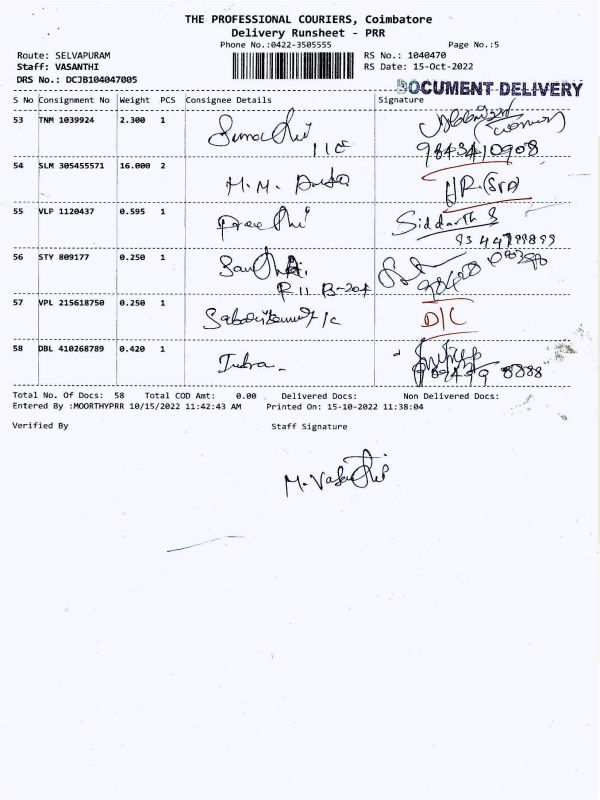 THE PROFESSIONAL COURIERS, Coimbatore
Delivery Runsheet - PRR
Phone No.:0422-3505555 Page No.:5
Route: SELVAPURAM RS No.: 1040470
Staff: VASANTHI RS Date: 15-Oct-2022
DRS No.: DCJB104047005
DOCUMENT DELIVERY
S No Consignment No Weight PCS Consignee Details Signature
53 TNM 1039924 2.300 1
9843410908
54 SLM 305455571 16.000 2 M.M.
55 VLP 1120437 0.595 1 Preethi Siddarth S
56 STY 809177 0.250 1
R 11 B-204
57 VPL 215618750 0.250 1 D/C
58 DBL 410268789 0.420 1 Indra
Total No. Of Docs: 58 Total COD Amt: 0.00 Delivered Docs: Non Delivered Docs:
Entered By :MOORTHYPRR 10/15/2022 11:42:43 AM Printed On: 15-10-2022 11:38:04
Verified By Staff Signature
M. Vasanthi